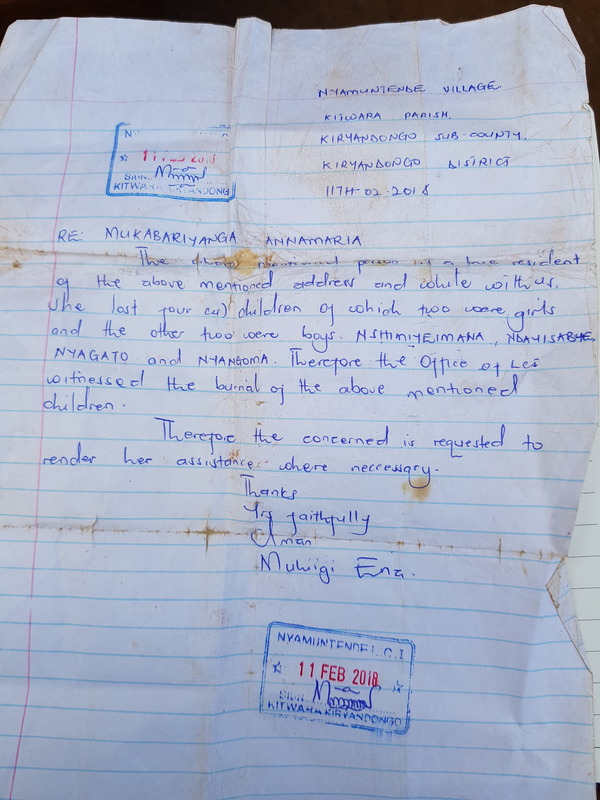 NYAMUNTENDE VILLAGE.
KITWARA PARISH.
KIRYANDONGO SUB-COUNTY.
KIRYANDONGO DISTRICT
11TH-02-2018
SIGN
KITWARA KIRYANDONG
RE: MUKABARIYANGA ANNAMARIA
The above mentioned person is a true resident
of the above mentioned address and while with us,
she lost four (4) children of which two were girls
and the other two were boys. NSHIMIYEIMANA, NDAYISABYE,
NYAGATO and NYANGOMA. Therefore the Office of LCI
witnessed the burial of the above mentioned
children.
Therefore the concerned is requested to
render her assistance where neccessary.
Thanks
Yrs faithfully
NYAMUNTENDE L.C.I
11 FEB 2018
SIGN
KITWARA KIRYANDONGO